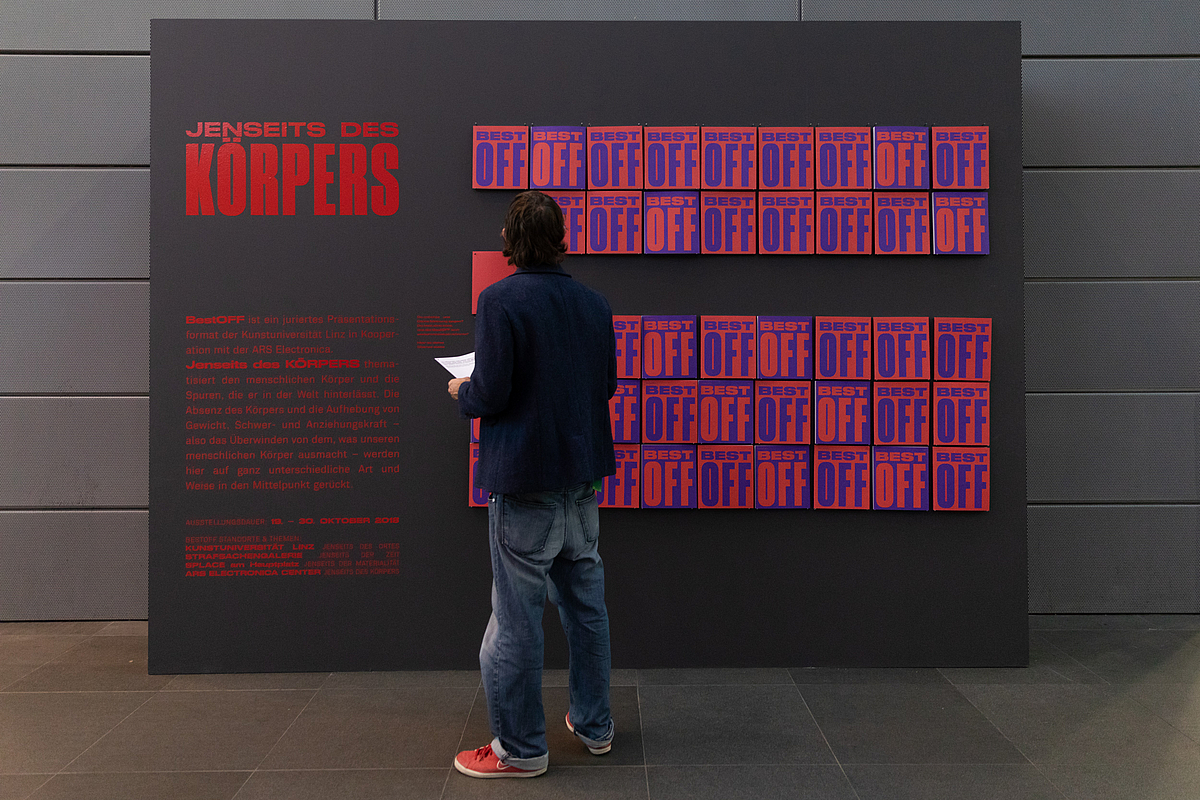 JENSEITS DES
KÖRPERS
BestOFF ist ein juriertes Präsentations-
format der Kunstuniversität Linz in Kooper-
ation mit der ARS Electronica.
Jenseits des KÖRPERS thema-
tisiert den menschlichen Körper und die
Spuren, die er in der Welt hinterlässt. Die
Absenz des Körpers und die Aufhebung von
Gewicht, Schwer- und Anziehungskraft –
also das Überwinden von dem, was unseren
menschlichen Körper ausmacht – werden
hier auf ganz unterschiedliche Art und
Weise in den Mittelpunkt gerückt.
AUSSTELLUNGSDAUER: 19. – 30. OKTOBER 2018
BESTOFF STANDORTE & THEMEN:
KUNSTUNIVERSITÄT LINZ JENSEITS DES ORTES
STRAFSACHENGALERIE JENSEITS DER ZEIT
SPLACE am Hauptplatz JENSEITS DES MATERIALITÄT
ARS ELECTRONICA CENTER JENSEITS DES KÖRPERS
BEST BEST BEST BEST BEST BEST BEST BEST BEST
OFF OFF OFF OFF OFF OFF OFF OFF OFF
BEST BEST BEST BEST BEST BEST BEST
OFF OFF OFF OFF OFF OFF OFF
BEST BEST BEST BEST BEST BEST
OFF OFF OFF OFF OFF OFF
BEST BEST BEST BEST BEST BEST
OFF OFF OFF OFF OFF OFF
BEST BEST BEST BEST BEST BEST
OFF OFF OFF OFF OFF OFF